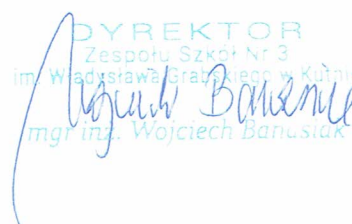 DYREKTOR
Zespołu Szkół Nr 3
im. Władysława Grabskiego w Kutnie
mgr inż. Wojciech Banasiak